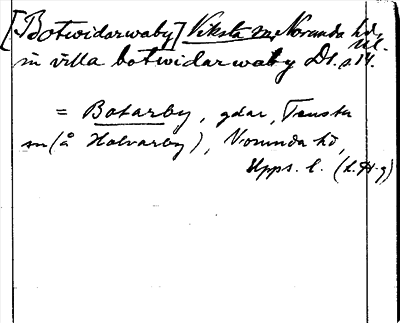 [Botwidarwaby] Viksta sn, Norunda hd,
in villa botwidarwaby Ds. a 14.
= Botarby, gdar, Tensta
sn (å Holvarby), Norunda hd,
Upps. l. (L. H-g)